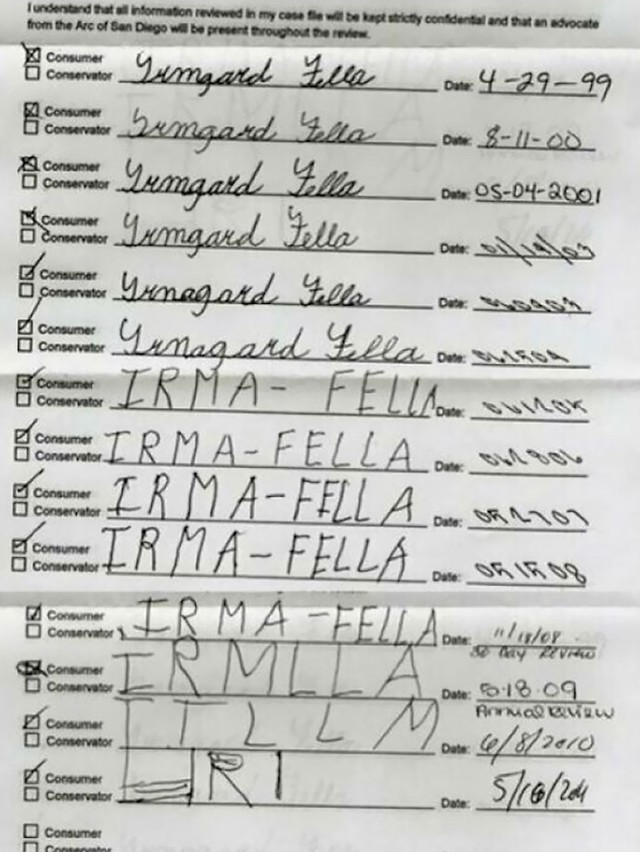 I understand that all information reviewed in my case file will be kept strictly confidential and that an advocate
from the Arc of San Diego will be present throughout the review.
Consumer
Conservator Yrmgard Fella Date: 4-29-99
Consumer
Conservator Yrmgard Fella Date: 8-11-00
Consumer
Conservator Yrmgard Fella Date: 05-04-2001
Consumer
Conservator Yrmgard Fella Date:
Consumer
Conservator Yrnagard Fella Date:
Consumer
Conservator Yrnagard Fella Date:
Consumer
Conservator IRMA- FELLA Date:
Consumer
Conservator IRMA-FELLA Date:
Consumer
Conservator IRMA-FELLA Date:
Consumer
Conservator IRMA-FELLA Date: 051508
Consumer
Conservator IRMA-FELLA Date: 11/18/08
30 DAY REVIEW
Consumer
Conservator IRMLLA Date: 5-18-09
Annual Review
Consumer
Conservator ITLLM Date: 6/8/2010
Consumer
Conservator RI Date:
Consumer
Conservator